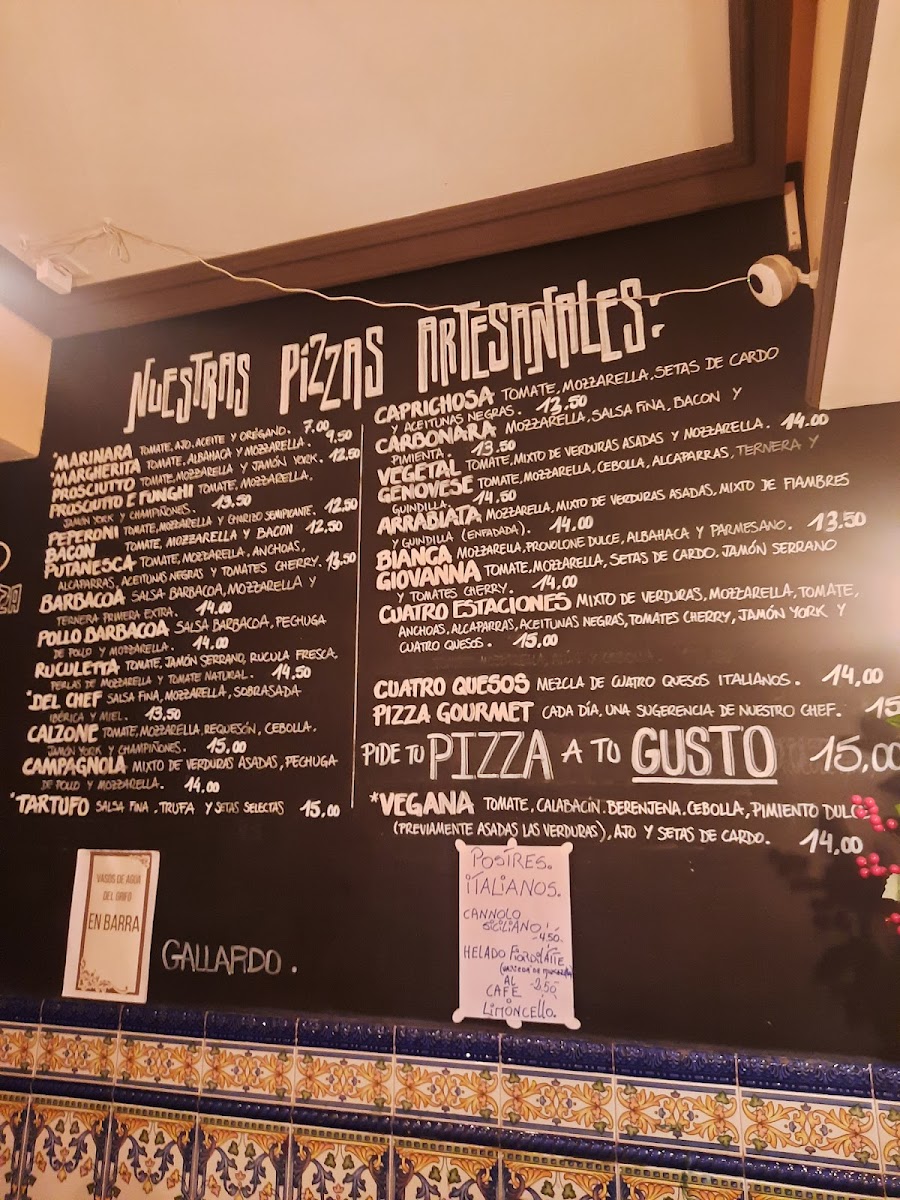 NUESTRAS PIZZAS ARTESANALES:
*MARINARA TOMATE, AJO, ACEITE Y ORÉGANO. 7.00
MARGHERITA TOMATE, ALBAHACA Y MOZZARELLA. 9,50
PROSCIUTTO TOMATE, MOZZARELLA Y JAMÓN YORK. 12.50
PROSCIUTTO E FUNGHI TOMATE, MOZZARELLA,
JAMÓN YORK Y CHAMPIÑONES. 13.50
PEPERONI TOMATE, MOZZARELLA Y CHORIZO SEMIPICANTE. 12.50
BACON TOMATE, MOZZARELLA Y BACON 12.50
PUTANESCA TOMATE, MOZZARELLA, ANCHOAS,
ALCAPARRAS, ACEITUNAS NEGRAS Y TOMATES CHERRY. 13,50
BARBACOA SALSA BARBACOA, MOZZARELLA Y
TERNERA PRIMERA EXTRA. 14.00
POLLO BARBACOA SALSA BARBACOA, PECHUGA
DE POLLO Y MOZZARELLA. 14.00
RUCULETTA TOMATE, JAMÓN SERRANO, RUCULA FRESCA,
PERLAS DE MOZZARELLA Y TOMATE NATURAL. 14,50
*DEL CHEF SALSA FINA, MOZZARELLA, SOBRASADA
IBÉRICA Y MIEL. 13,50
CALZONE TOMATE, MOZZARELLA, REQUESÓN, CEBOLLA,
JAMÓN YORK Y CHAMPIÑONES. 15,00
CAMPAGNOLA MIXTO DE VERDURAS ASADAS, PECHUGA
DE POLLO Y MOZZARELLA. 14,00
*TARTUFO SALSA FINA, TRUFA Y SETAS SELECTAS 15,00
CAPRICHOSA TOMATE, MOZZARELLA, SETAS DE CARDO
Y ACEITUNAS NEGRAS. 13,50
CARBONARA MOZZARELLA, SALSA FINA, BACON Y
PIMIENTA. 13.50
VEGETAL TOMATE, MIXTO DE VERDURAS ASADAS Y MOZZARELLA. 14.00
GENOVESE TOMATE, MOZZARELLA, CEBOLLA, ALCAPARRAS, TERNERA Y
GUINDILLA. 14.50
ARRABIATA MOZZARELLA, MIXTO DE VERDURAS ASADAS, MIXTO DE FIAMBRES
Y GUINDILLA (ENFADADA). 14,00
BIANCA MOZZARELLA, PROVOLONE DULCE, ALBAHACA Y PARMESANO. 13.50
GIOVANNA TOMATE, MOZZARELLA, SETAS DE CARDO, JAMÓN SERRANO
Y TOMATES CHERRY. 14,00
CUATRO ESTACIONES MIXTO DE VERDURAS, MOZZARELLA, TOMATE,
ANCHOAS, ALCAPARRAS, ACEITUNAS NEGRAS, TOMATES CHERRY, JAMÓN YORK Y
CUATRO QUESOS. 15,00
CUATRO QUESOS MEZCLA DE CUATRO QUESOS ITALIANOS. 14,00
PIZZA GOURMET CADA DÍA, UNA SUGERENCIA DE NUESTRO CHEF. 15
PIDE TU PIZZA A TU GUSTO 15,00
*VEGANA TOMATE, CALABACÍN, BERENJENA, CEBOLLA, PIMIENTO DULCE
(PREVIAMENTE ASADAS LAS VERDURAS), AJO Y SETAS DE CARDO. 14,00
VASOS DE AGUA
DEL GRIFO
EN BARRA
GALLARDO.
POSTRES.
ITALIANOS.
CANNOLO
SICILIANO
-4,50-
HELADO FIORDILATTE
AL
CAFÉ -2,50
O
LIMONCELLO.